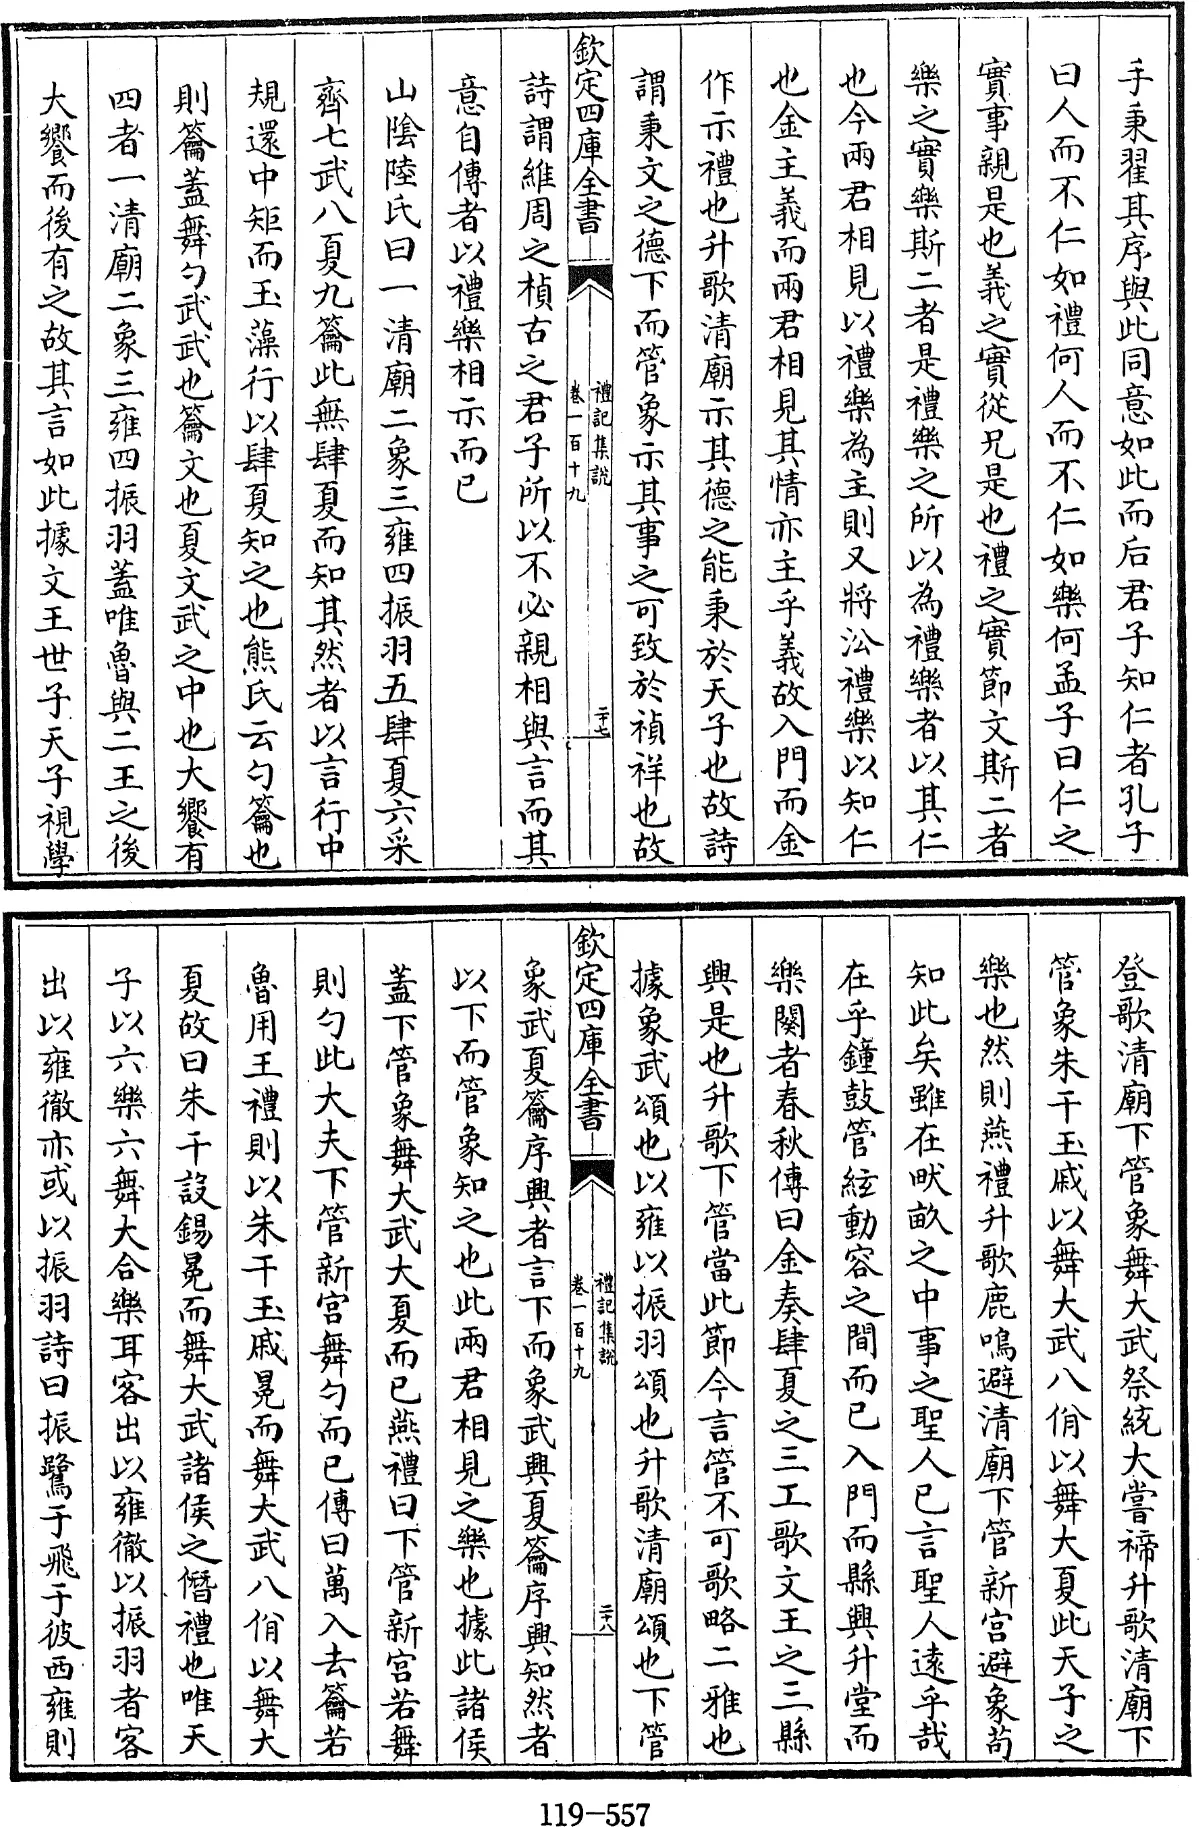 手秉翟其序與此同意如此而后君子知仁者孔子
曰人而不仁如禮何人而不仁如樂何孟子曰仁之
實事親是也義之實從兄是也禮之實節文斯二者
樂之實樂斯二者是禮樂之所以為禮樂者以其仁
也今兩君相見以禮樂為主則又將訟禮樂以知仁
也金主義而兩君相見其情亦主乎義故入門而金
作示禮也升歌清廟示其德之能秉於天子也故詩
謂秉文之德下而管象示其事之可致於禎祥也故
欽定四庫全書
禮記集說
卷一百十九
二十七
詩謂維周之楨古之君子所以不必親相與言而其
意自傳者以禮樂相示而已
山陰陸氏曰一清廟二象三雍四振羽五肆夏六采
齊七武八夏九籥此無肆夏而知其然者以言行中
規還中矩而玉藻行以肆夏知之也熊氏云勺籥也
則籥蓋舞勺武武也籥文也夏文武之中也大饗有
四者一清廟二象三雍四振羽蓋唯魯與二王之後
大饗而後有之故其言如此據文王世子天子視學
登歌清廟下管象舞大武祭統大嘗禘升歌清廟下
管象朱干玉戚以舞大武八佾以舞大夏此天子之
樂也然則燕禮升歌鹿鳴避清廟下管新宮避象苟
知此矣雖在畎畝之中事之聖人已言聖人遠乎哉
在乎鐘鼓管絃動容之間而已入門而縣興升堂而
樂闋者春秋傳曰金奏肆夏之三工歌文王之三縣
興是也升歌下管當此節今言管不可歌略二雅也
據象武頌也以雍以振羽頌也升歌清廟頌也下管
欽定四庫全書
禮記集說
卷一百十九
二十八
象武夏籥序興者言下而象武興夏籥序興知然者
以下而管象知之也此兩君相見之樂也據此諸侯
蓋下管象舞大武大夏而已燕禮曰下管新宮若舞
則勺此大夫下管新宮舞勺而已傳曰萬入去籥若
魯用王禮則以朱干玉戚冕而舞大武八佾以舞大
夏故曰朱干設錫冕而舞大武諸侯之僭禮也唯天
子以六樂六舞大合樂耳客出以雍徹以振羽者客
出以雍徹亦或以振羽詩曰振鷺于飛于彼西雍則
119-557